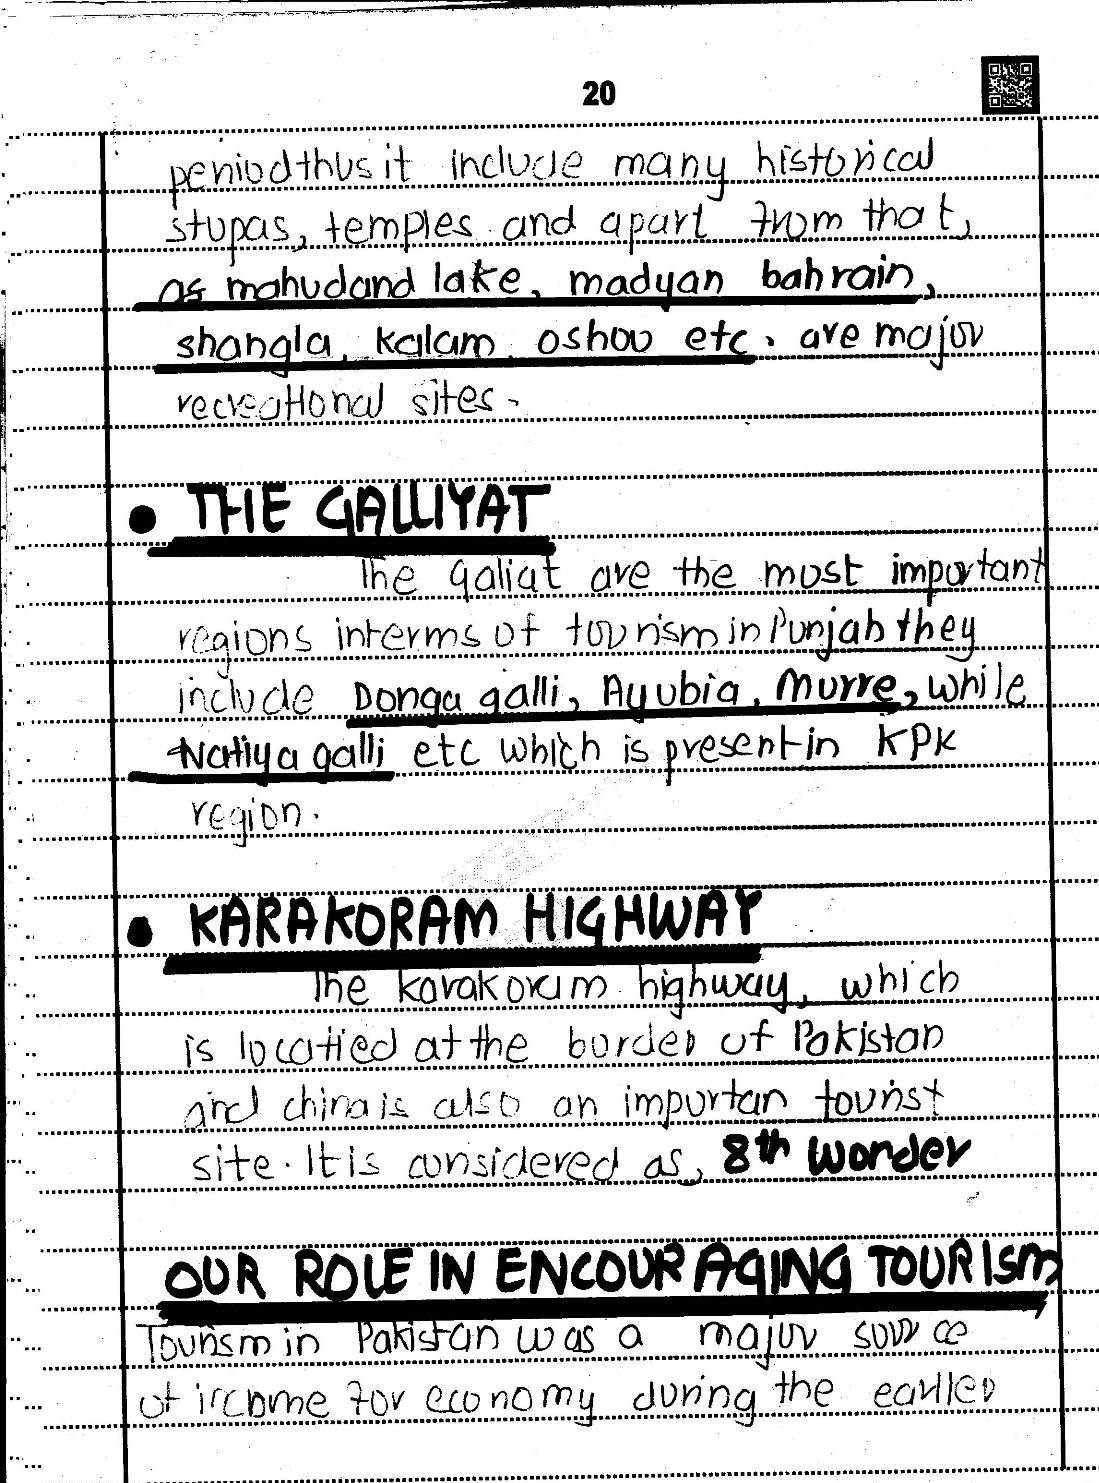 20
periodthus it include many historical
stupas, temples and apart from that,
as mahudand lake, madyan bahrain,
shangla, kalam, oshoo etc. are major
recreational sites.
• THE GALLIYAT
The galiat are the most important
regions interms of tourism in Punjab they
include Donga galli, Ayubia, Murre, while
Natiya galli etc which is present in KPK
region.
• KARAKORAM HIGHWAY
The karakoram highway, which
is locatied at the border of Pakistan
and china is also an importan tourist
site. It is considered as, 8th wonder
OUR ROLE IN ENCOURAGING TOURISM
Tourism in Pakistan was a major source
of income for economy during the earlier